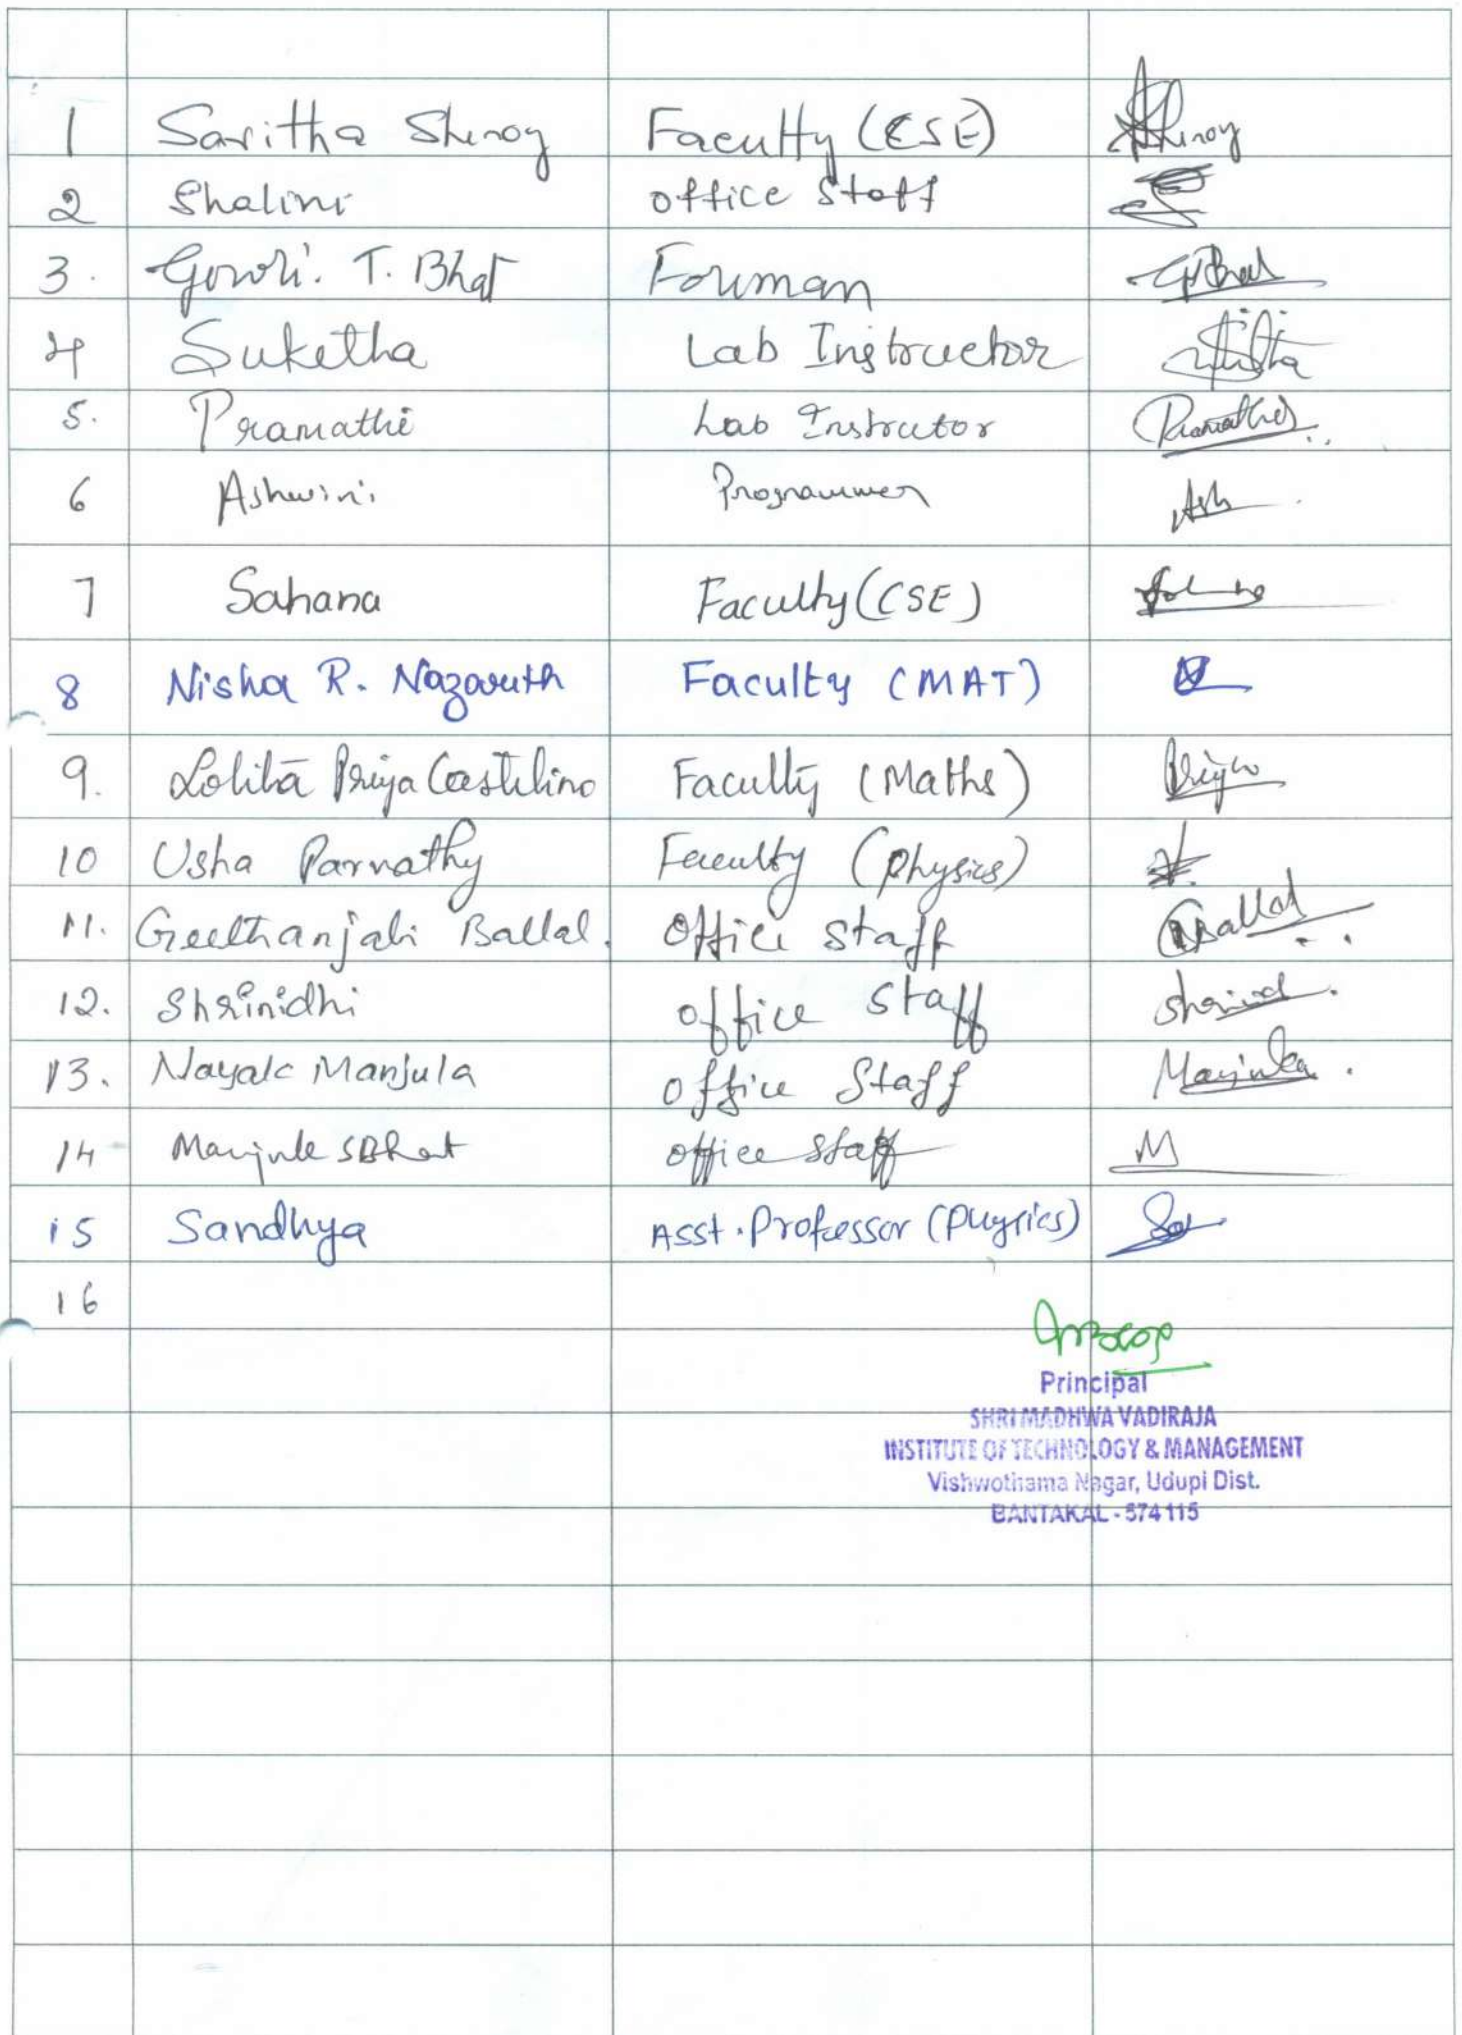 1 Saritha Shenoy Faculty (CSE) Shenoy
2 Shalini office Staff
3. Gowri. T. Bhat Foreman
4 Suketha Lab Instructor
5. Pramathi Lab Instructor Pramathi
6 Ashwini Programmer Ash
7 Sahana Faculty (CSE)
8 Nisha R. Nazareth Faculty (MAT)
9. Lolita Priya Castelino Faculty (Maths) Priya
10 Usha Parvathy Faculty (Physics)
11. Geethanjali Ballal. Office staff Ballal
12. Shrinidhi office staff
13. Nayak Manjula office Staff Manjula.
14 Manjula S Bhat office staff M
15 Sandhya Asst. Professor (Physics)
16
Principal
SHRI MADHWA VADIRAJA
INSTITUTE OF TECHNOLOGY & MANAGEMENT
Vishwothama Nagar, Udupi Dist.
BANTAKAL - 574 115